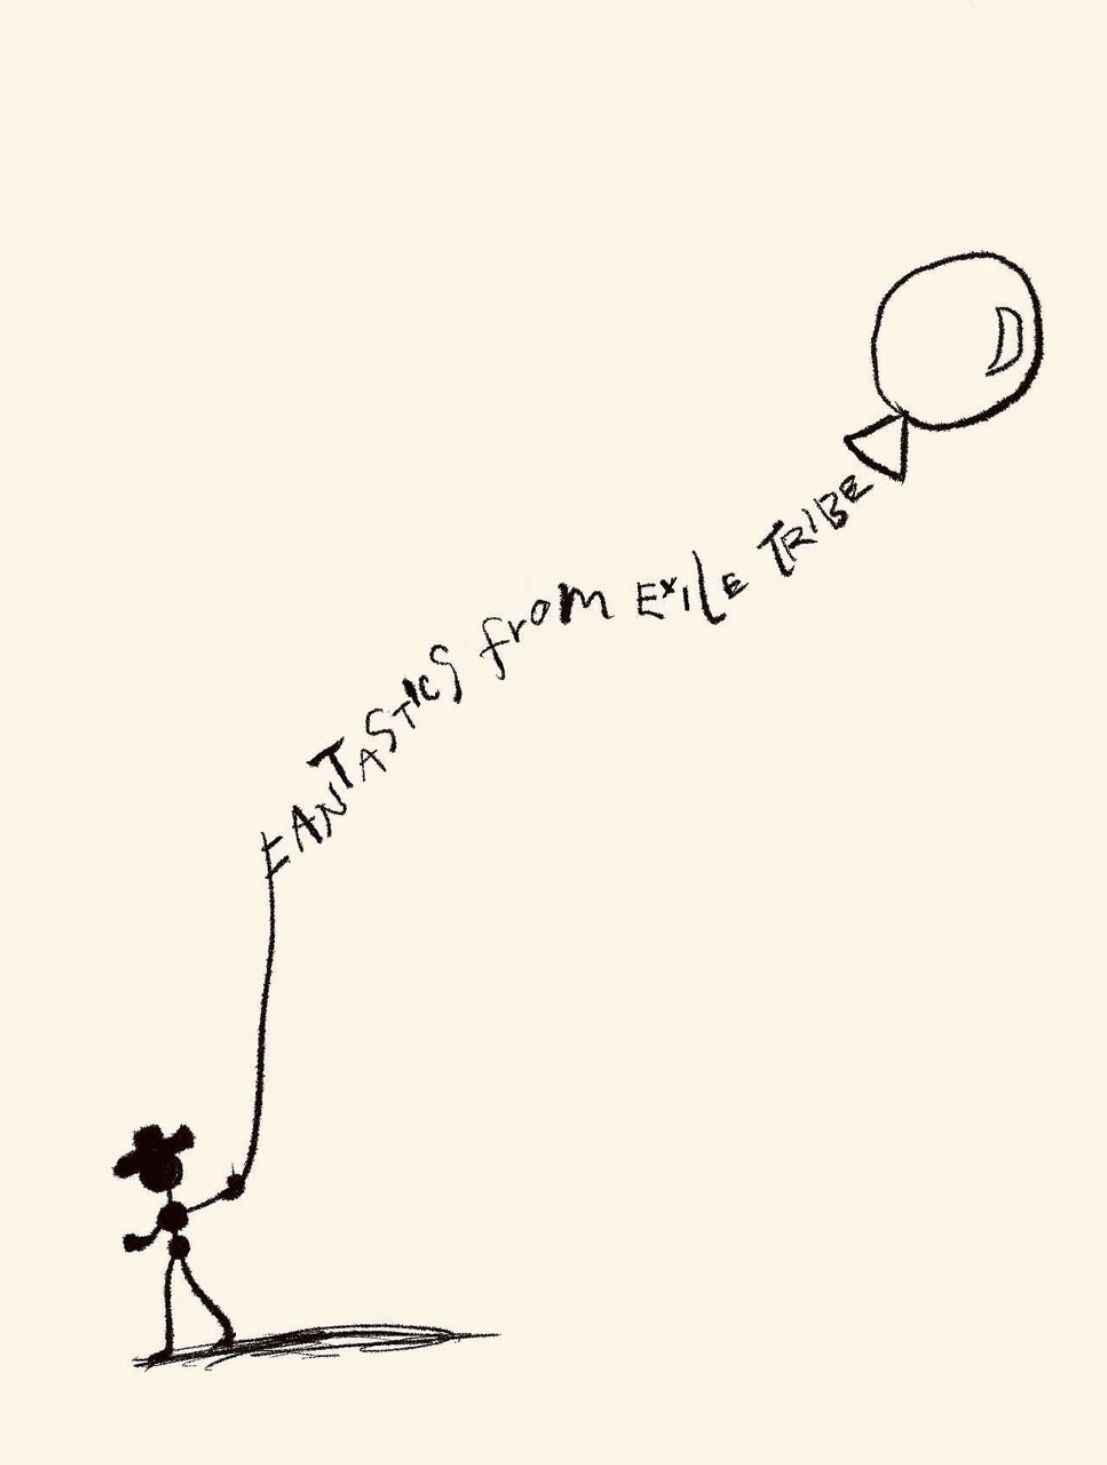 FANTASTICS from EXILE TRIBE